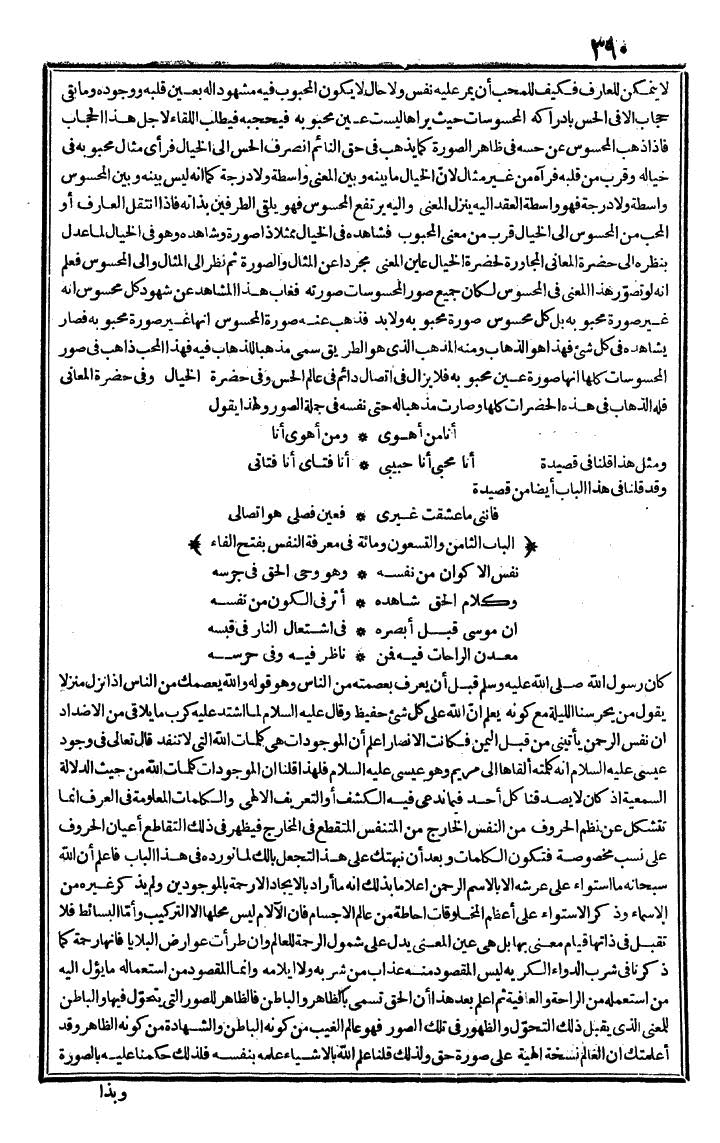 ٣٩٠
لا يتمكن للعارف فكيف للمحب أن يمر عليه نفس ولا حال لا يكون المحبوب فيه مشهودا له بعين قلبه ووجوده وما بقى
حجاب الا فى الحس بادراكه المحسوسات حيث يراها ليست عين محبوبه فيحجبه فيطلب اللقاء لاجل هذا الحجاب
فاذا ذهب المحسوس عن حسه فى ظاهر الصورة كما يذهب فى حق النائم انصرف الحس الى الخيال فرأى مثال محبوبه فى
خياله وقرب من قلبه فرآه من غير مثال لان الخيال ما بينه و بين المعنى واسطة ولا درجة كما انه ليس بينه و بين المحسوس
واسطة ولا درجة فهو واسطة العقد اليه ينزل المعنى واليه يرتفع المحسوس فهو يلقى الطرفين بذاته فاذا انتقل العارف أو
المحب من المحسوس الى الخيال قرب من معنى المحبوب فشاهده فى الخيال ممثلا ذا صورة وشاهده وهو فى الخيال لما عدل
بنظره الى حضرة المعانى المجاورة لحضرة الخيال عاين المعنى مجردا عن المثال والصورة ثم نظر الى المثال والى المحسوس فعلم
انه لو تصوّر هذا المعنى فى المحسوس لكان جميع صور المحسوسات صورته فغاب هذا المشاهد عن شهود كل محسوس انه
غير صورة محبوبه بل كل محسوس صورة محبوبه ولا بد فذهب عنه صورة المحسوس انها غير صورة محبوبه فصار
يشاهده فى كل شئ فهذا هو الذهاب ومنه المذهب الذى هو الطريق سمى مذهبا للذهاب فيه فهذا المحب ذاهب فى صور
المحسوسات كلها انها صورة عين محبوبه فلا يزال فى اتصال دائم فى عالم الحس وفى حضرة الخيال وفى حضرة المعانى
فله الذهاب فى هذه الحضرات كلها وصارت مذهبا له حتى نفسه فى جملة الصور ولهذا يقول
أنا من أهوى * ومن أهوى أنا
ومثل هذا قلنا فى قصيدة أنا محبى أنا حبيبى * أنا فتاى أنا فتاتى
وقد قلنا فى هذا الباب أيضا من قصيدة
فاننى ما عشقت غيرى * فعين فصلى هو اتصالى
﴿ الباب الثامن والتسعون ومائة فى معرفة النفس بفتح الفاء ﴾
نفس الاكوان من نفسه * وهو وحى الحق فى جرسه
وكلام الحق شاهده * أثر فى الكون من نفسه
ان موسى قبل أبصره * فى اشتعال النار فى قبسه
معدن الراحات فيه فن * ناظر فيه وفى حرسه
كان رسول الله صلى الله عليه وسلم قبل أن يعرف بعصمته من الناس وهو قوله والله يعصمك من الناس اذا نزل منزلا
يقول من يحرسنا الليلة مع كونه يعلم انّ الله على كل شئ حفيظ وقال عليه السلام لما اشتد عليه كرب ما يلاقى من الاضداد
ان نفس الرحمن يأتينى من قبل اليمن فكانت الانصار اعلم أن الموجودات هى كلمات الله التى لا تنفد قال تعالى فى وجود
عيسى عليه السلام انه كلمته ألقاها الى مريم وهو عيسى عليه السلام فلهذا قلنا ان الموجودات كلمات الله من حيث الدلالة
السمعية اذ كان لا يصدقنا كل أحد فيما ندعى فيه الكشف أو التعريف الالهى والكلمات المعلومة فى العرف انما
تتشكل عن نظم الحروف من النفس الخارج من المتنفس المتقطع فى المخارج فيظهر فى ذلك التقاطع أعيان الحروف
على نسب مخصوصة فتكون الكلمات و بعد أن نبهتك على هذا لتجعل بالك لما نورده فى هذا الباب فاعلم أن الله
سبحانه ما استواء على عرشه الا بالاسم الرحمن اعلاما بذلك انه ما أراد بالايجاد الا رحمة بالموجودين ولم يذكر غيره من
الاسماء وذكر الاستواء على أعظم المخلوقات احاطة من عالم الاجسام فان الآلام ليس محلها الا التركيب وأمّا البسائط فلا
تقبل فى ذاتها قيام معنى بها بل هى عين المعنى يدل على شمول الرحمة للعالم وان طرأت عوارض البلايا فانها رحمة كما
ذكرنا فى شرب الدواء الكريه ليس المقصود منه عذاب من شربه ولا ايلامه وانما المقصود من استعماله ما يؤل اليه
من استعمله من الراحة والعافية ثم اعلم بعد هذا أن الحق تسمى بالظاهر والباطن فالظاهر للصور التى يتحوّل فيها والباطن
للمعنى الذى يقبل ذلك التحوّل والظهور فى تلك الصور فهو عالم الغيب من كونه الباطن والشهادة من كونه الظاهر وقد
أعلمتك ان العالم نسخة الهية على صورة حق ولذلك قلنا علم الله بالاشياء علمه بنفسه فلذلك حكمنا عليه بالصورة
وبذا